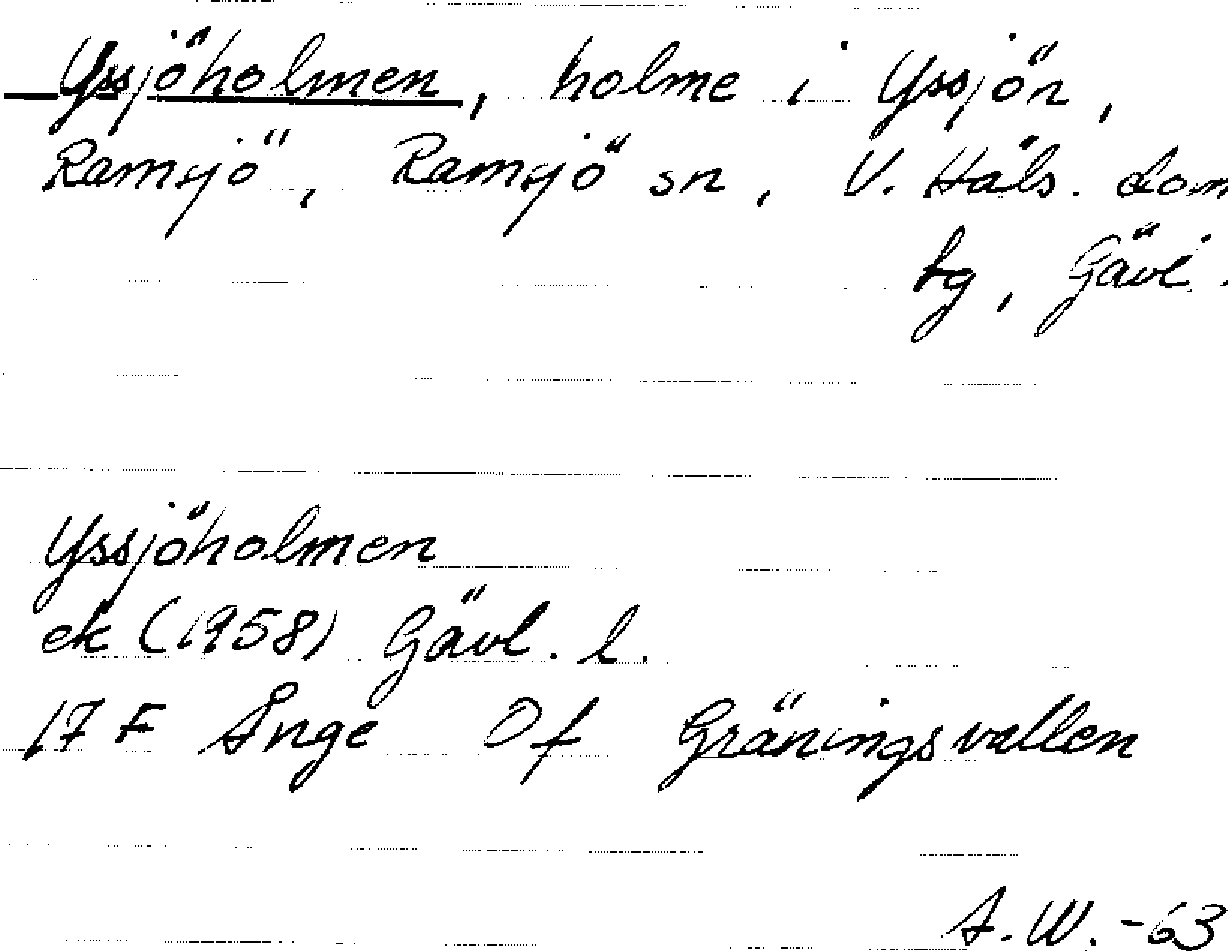 Yssjöholmen, holme i Yssjön,
Ramsjö, Ramsjö sn, V. Häls. dom
bg, Gävl.
Yssjöholmen
ek (1958) Gävl. l.
17 F Ånge Of Gräningsvallen
A.W. -63